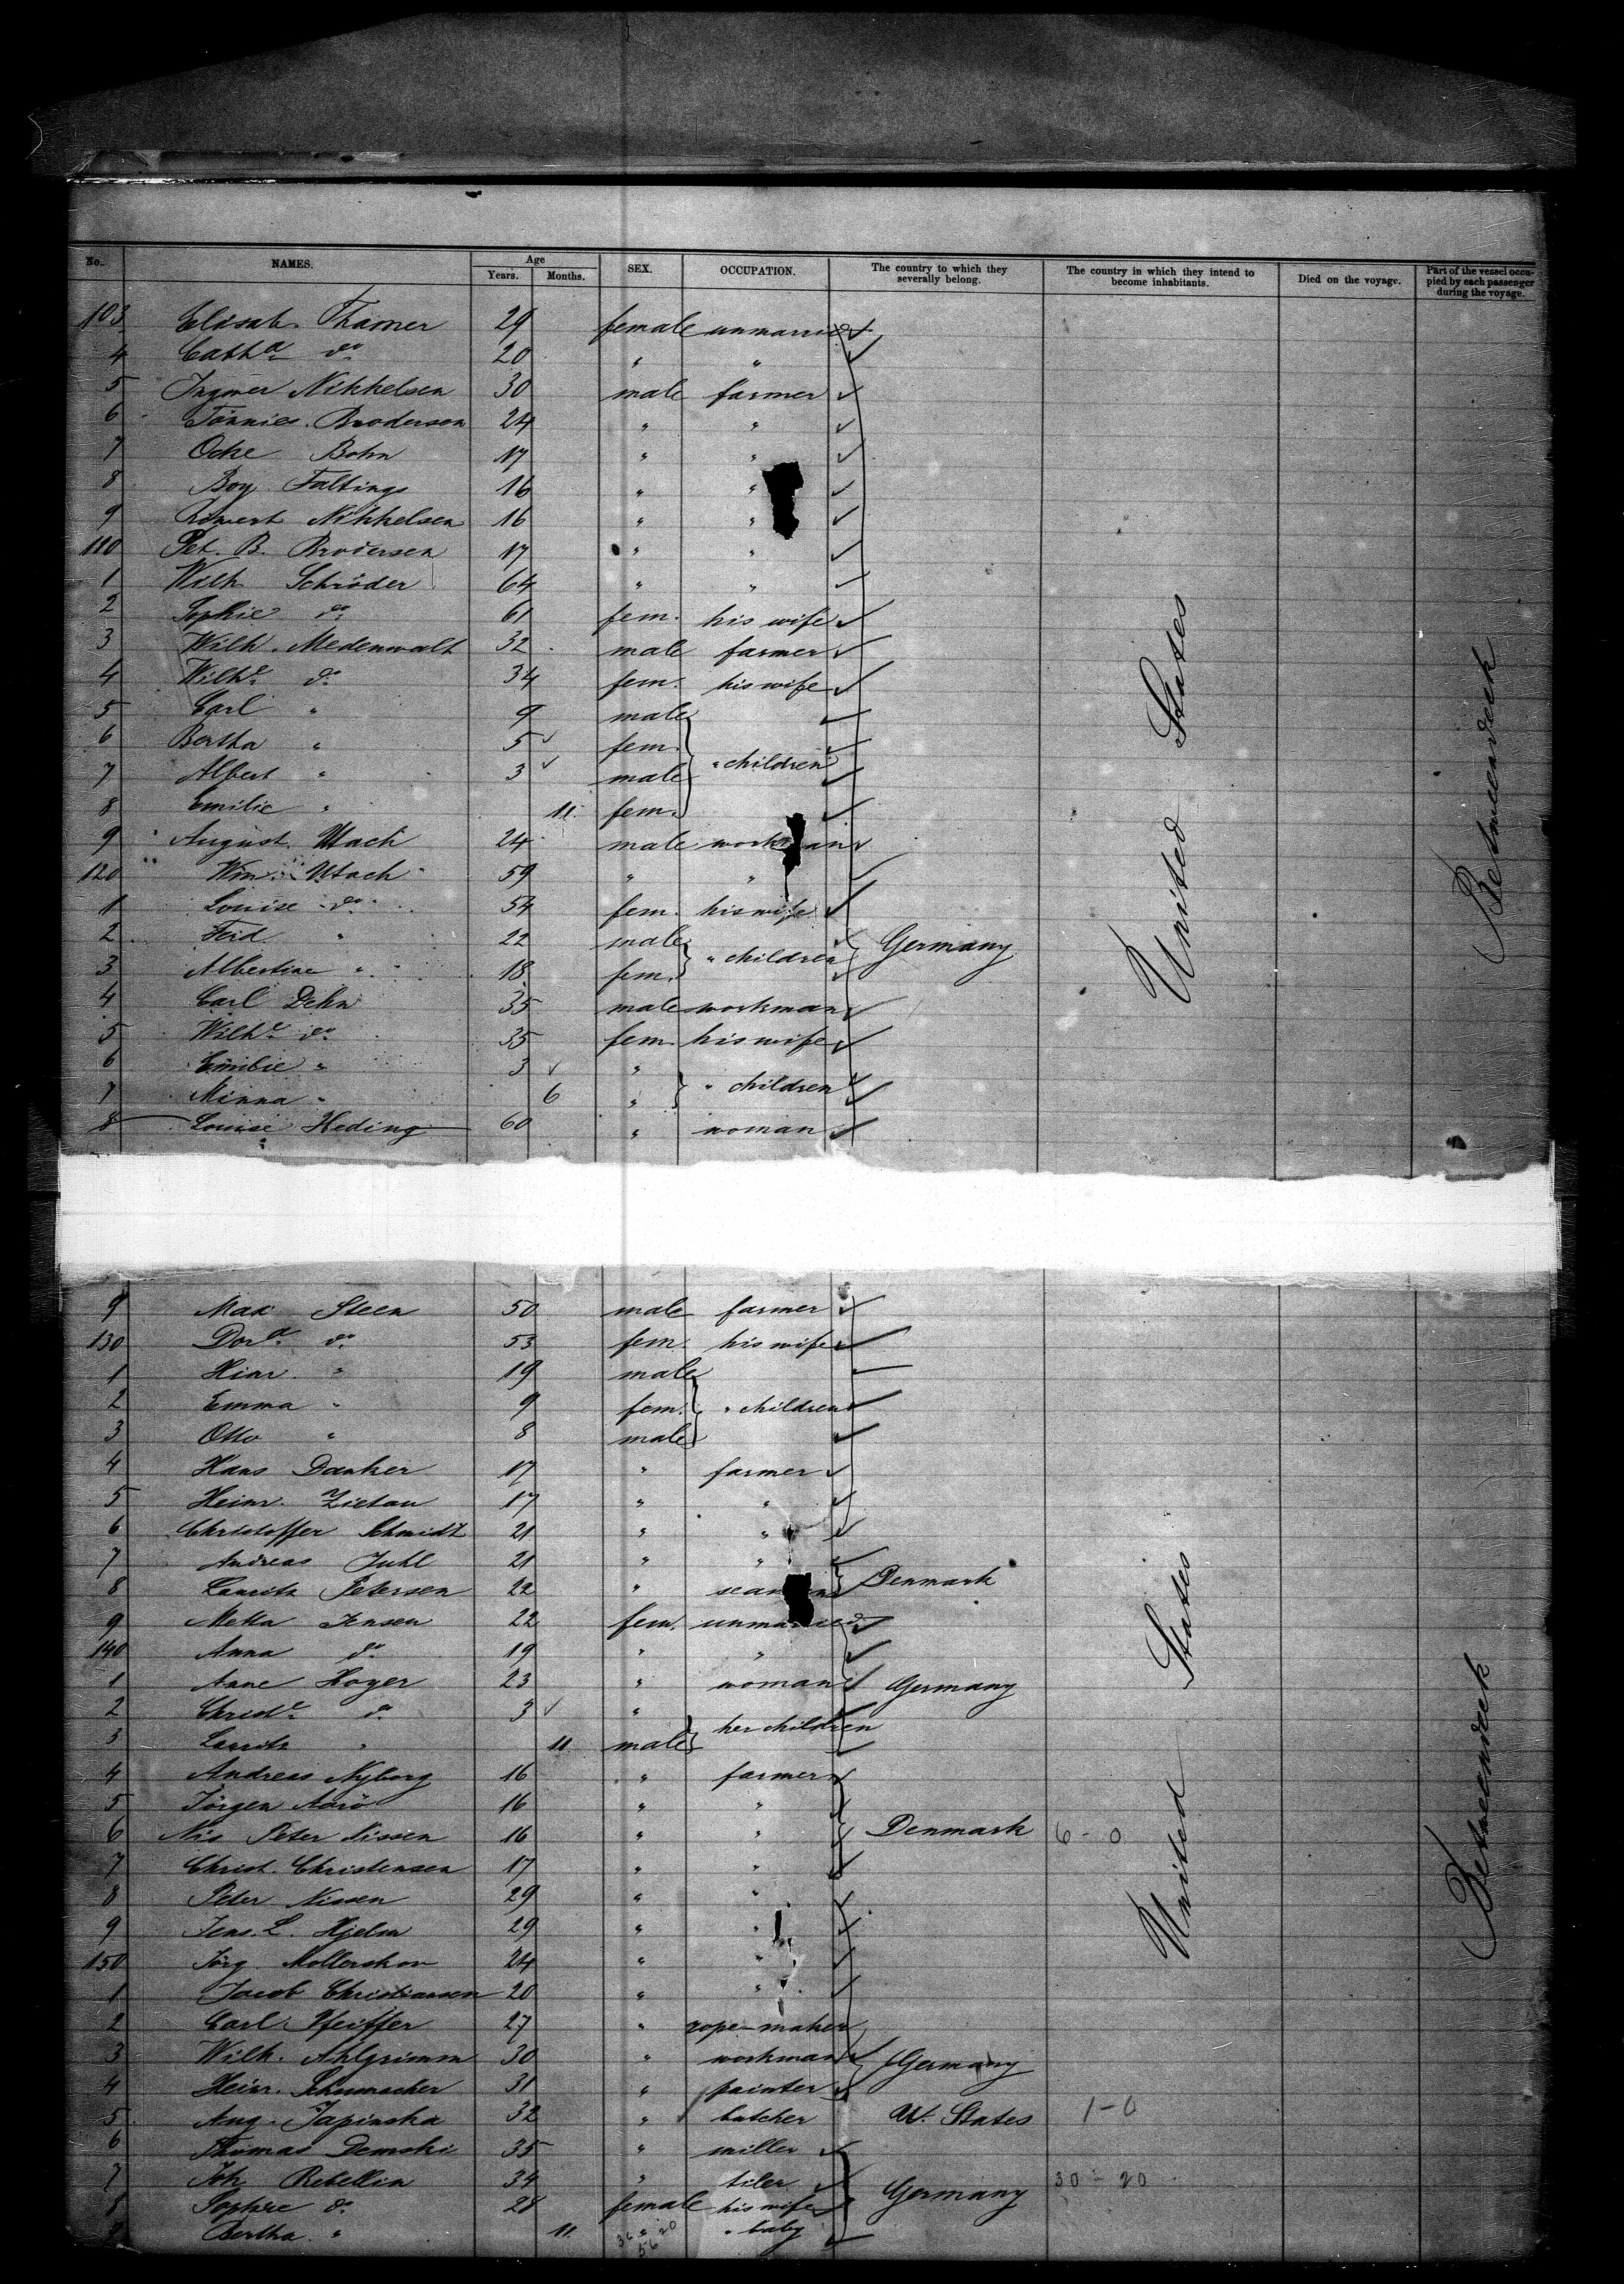 No. NAMES. Age Years. Months. SEX. OCCUPATION. The country to which they severally belong. The country in which they intend to become inhabitants. Died on the voyage. Part of the vessel occupied by each passenger during the voyage.
103 Elisab. Thamer 29 female unmarried
4 Cath a do 20 " "
5 Ingwer Nikkelsen 30 male farmer
6 Tönnies Brodersen 24 " "
7 Ocke Bohn 17 " "
8 Boy Faltings 16 " "
9 Rörwert Nikkelsen 16 " "
110 Pet. B. Brodersen 17 " "
1 Wilh Schröder 64 " "
2 Sophie do 61 fem. his wife
3 Wilh. Medenwalt 32 male farmer
4 Wilhe do 34 fem. his wife
5 Carl " 9 male
6 Bertha " 5 fem. " children
7 Albert " 3 male
8 Emilie " 11 fem.
9 August Utach 24 male workman
120 Wm. Utach 59 " "
1 Louise do 54 fem. his wife
2 Ferd. " 22 male " children Germany United States Betweendeck
3 Albertine " 18 fem.
4 Carl Dehn 35 male workman
5 Wilhe do 35 fem. his wife
6 Emilie " 3 " " children
7 Minna " 6 "
8 Louise Heding 60 " woman
9 Max Steen 50 male farmer
130 Dora do 53 fem. his wife
1 Hinr. " 19 male
2 Emma " 9 fem. " children
3 Otto " 8 male
4 Hans Danker 17 " farmer
5 Heinr. Zietau 17 " "
6 Christoffer Schmidt 21 " "
7 Andreas Juhl 21 " "
8 Lauritz Petersen 22 " seaman Denmark
9 Metta Jensen 22 fem. unmarried
140 Anna do 19 " "
1 Anne Hoyer 23 " woman Germany
2 Christe do 3 " her children
3 Lauritz " 11 male
4 Andreas Nyborg 16 " farmer
5 Jörgen Aarö 16 " "
6 Nis Peter Nissen 16 " " Denmark 6 - 0 United States Betweendeck
7 Christ. Christensen 17 " "
8 Peter Nissen 29 " "
9 Jens. L. Hjelm 29 " "
150 Jörg. Mollerskov 24 " "
1 Jacob Christiansen 20 " "
2 Carl Pfeiffer 27 " rope-maker
3 Wilh. Ahlgrimm 30 " workman Germany
4 Heinr. Schumacher 31 " painter
5 Aug. Japinska 32 " butcher U. States 1-0
6 Thomas Demski 35 " miller
7 Joh Rebellin 34 " tiler Germany 30 - 20
8 Sophie do 28 female his wife
9 Bertha " 11 " " baby
36 20
56